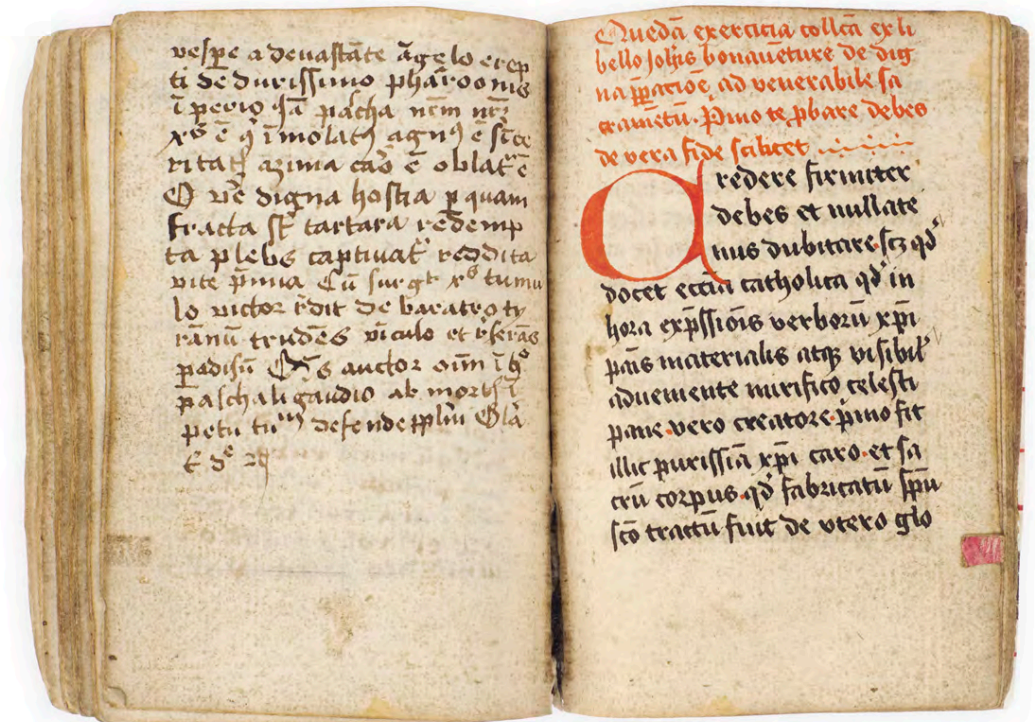 vespe a devastāte āgelo erep
ti de durissimo pharaonis
ī perio Jā pascha nrm nrꝫ
xp̄s ē qͥ īmolatꝰ agnꝰ ē sīce
ritatis azima caro ē oblat ē
O ve digna hostia p quam
fracta sūt tartara redemp
ta plebs captivat reddita
vite p̄mia Cū surgit xp̄s tumu
lo victor rdit de baratro ty
rānū trudēs vīculo et rserās
padisū Qs auctor oīm ī hͦ
paschali gaudio ab mortis ī
petu tuū defende pplm Glā
t dͤ
Quedā exercicia collcā ex li
bello Johis bonavēture de dig
na p̄patioē ad venerabile sa
cramētū. Pͥmo te p̄bare debes
de vera fide scilicet
Credere firmiter
debes et nullate
nus dubitare scꝫ qd̄
docet ecclīa catholica qd̄ in
hora exp̄ssiōis verborū xpī
panis materialis atqꝫ visibil
adveniente mirifico celesti
pane vero creatore pͥmo fit
illic purissīa xpī caro et sa
crū corpus qd̄ fabricatū spū
scō tractū fuit de vtero glo